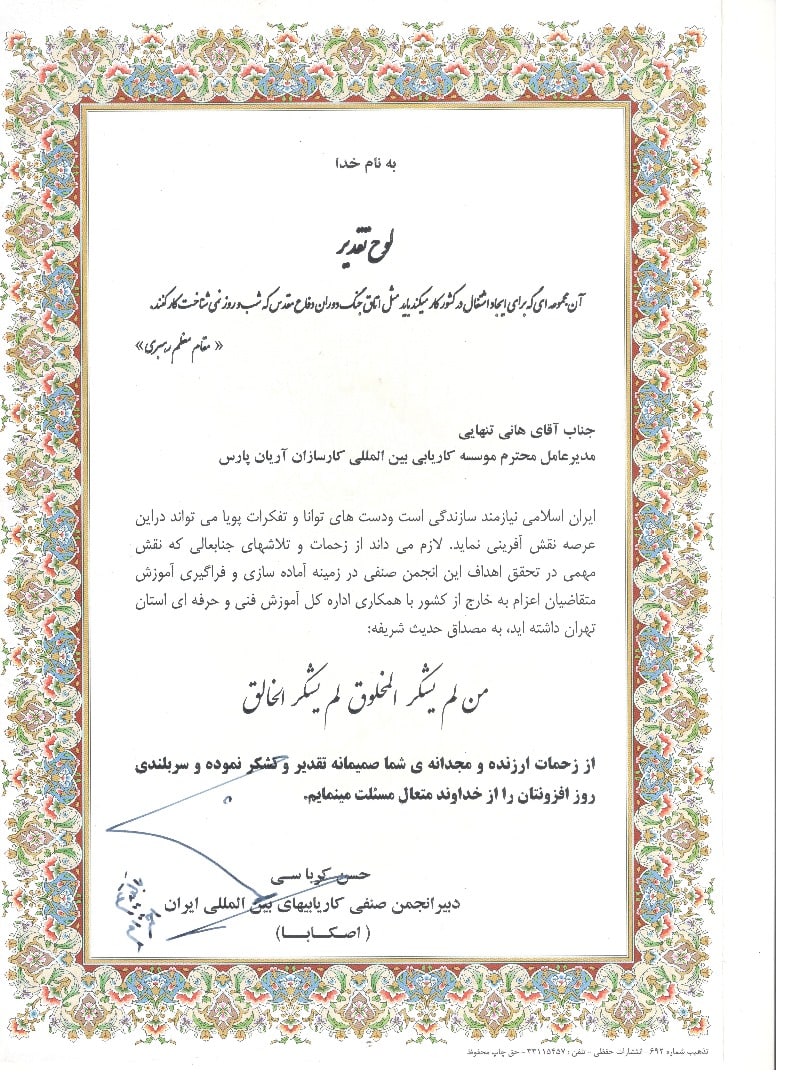 به نام خدا
لوح تقدیر
آن مجموعه ای که برای ایجاد اشتغال در کشور کار میکند باید مثل اتاق جنگ دوران دفاع مقدس که شب و روز نمی شناخت کار کنند.
« مقام معظم رهبری»
جناب آقای هانی تنهایی
مدیرعامل محترم موسسه کاریابی بین المللی کارسازان آریان پارس
ایران اسلامی نیازمند سازندگی است ودست های توانا و تفکرات پویا می تواند دراین
عرصه نقش آفرینی نماید. لازم می داند از زحمات و تلاشهای جنابعالی که نقش
مهمی در تحقق اهداف این انجمن صنفی در زمینه آماده سازی و فراگیری آموزش
متقاضیان اعزام به خارج از کشور با همکاری اداره کل آموزش فنی و حرفه ای استان
تهران داشته اید، به مصداق حدیث شریفه:
من لم یشکر المخلوق لم یشکر الخالق
از زحمات ارزنده و مجدانه ی شما صمیمانه تقدیر و تشکر نموده و سربلندی
روز افزونتان را از خداوند متعال مسئلت مینمایم.
حسن کرباسی
دبیرانجمن صنفی کاریابیهای بین المللی ایران
(اصکابا)
تذهیب شماره ۶۹۲ - انتشارات حفظی - تلفن : ۳۳۱۱۵۴۵۷ - حق چاپ محفوظ